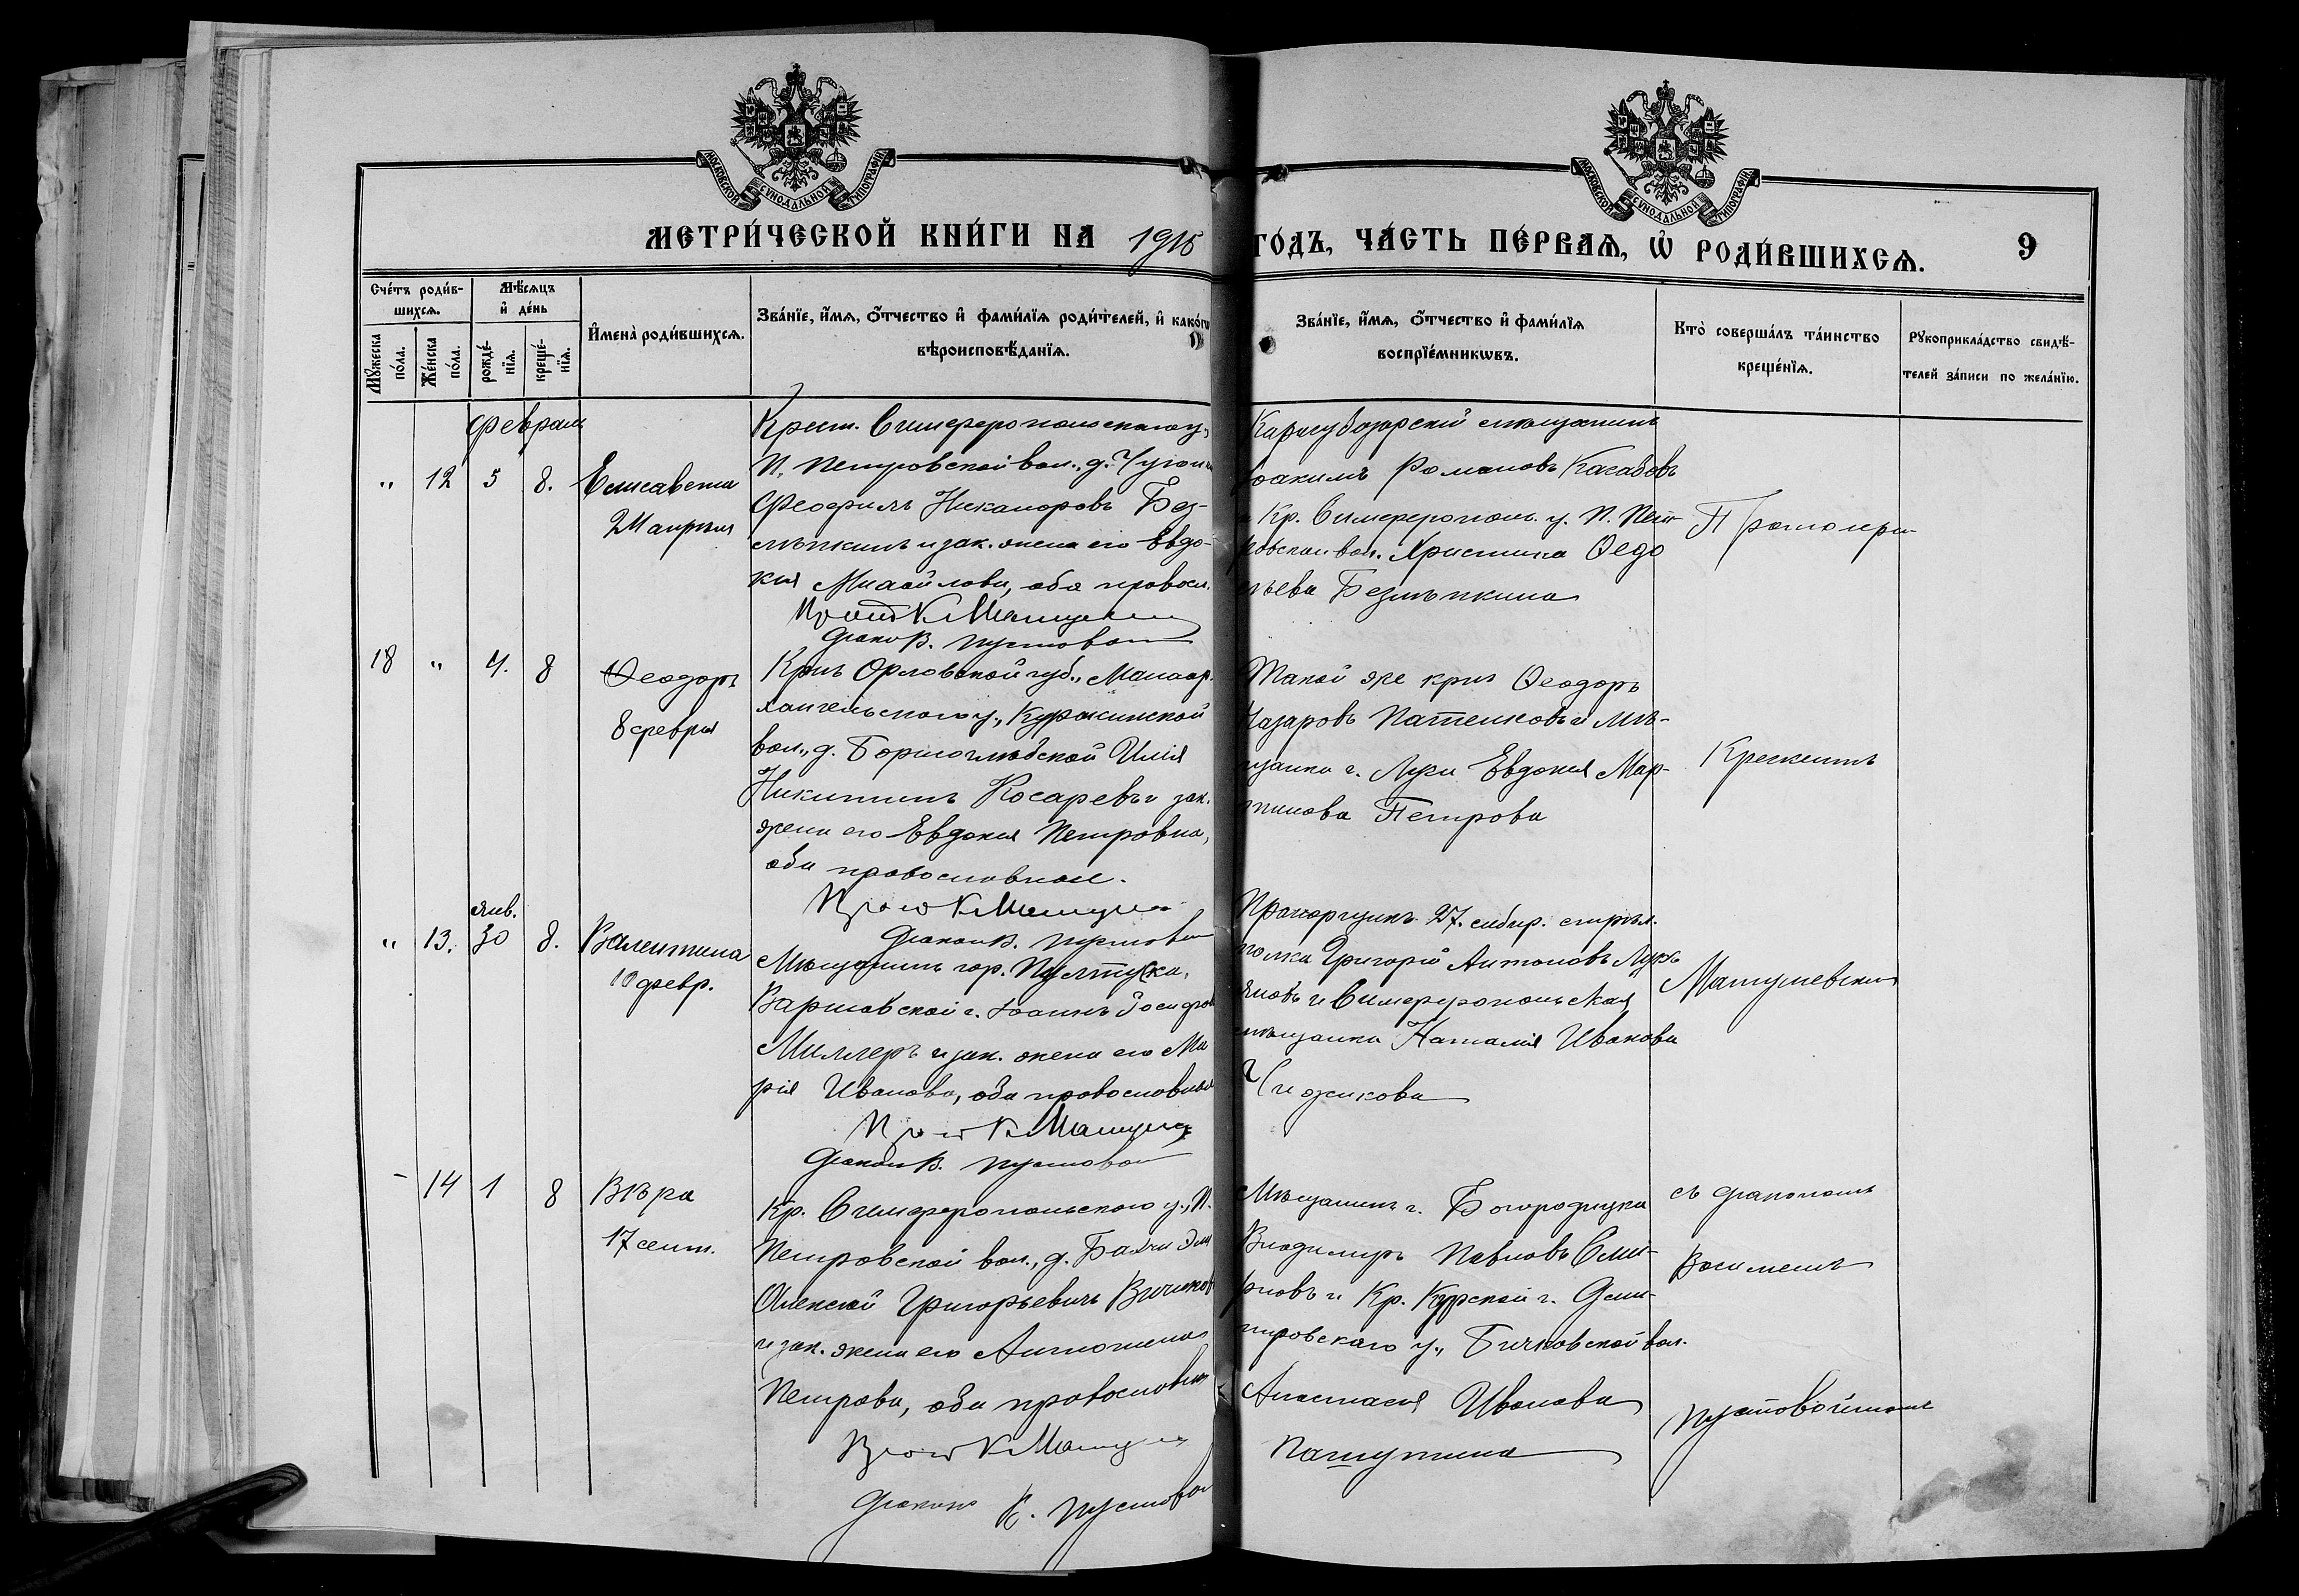 МОСКОВСКОЙ СѴНОДАЛЬНОЙ ТИПОГРАФІИ
МОСКОВСКОЙ СѴНОДАЛЬНОЙ ТИПОГРАФІИ
МЕТРИ́ЧЕСКОЙ КНИ́ГИ НА 1915 ГО́ДЪ, ЧА́СТЬ ПЕ́РВАѦ, Ѡ҆ РОДИ́ВШИХСѦ. 9
Сче́тъ роди́в-
шихсѧ.
Мѣ́сѧцъ
и҆ де́нь
Мꙋ́жеска
по́ла.
Же́нска
по́ла.
рожде́-
нїѧ.
креще́-
нїѧ.
И҆мена̀ роди́вшихсѧ.
Зва́нїе, и҆́мѧ, ѻ҆́тчество и҆ фами́лїѧ роди́телей, и҆ како́гѡ
вѣроисповѣ́данїѧ.
Зва́нїе, и҆́мѧ, ѻ҆́тчество и҆ фами́лїѧ
воспрїе́мникѡвъ.
Кто̀ соверша́лъ та́инство
креще́нїѧ.
Рꙋкоприкла́дство свидѣ́-
телей за́писи по жела́нїю.
Февраль
" 12 5 8. Елисавета
Крест. Симферопольскаго у.,
Н. Петровской вол., д.
Феофилъ Никаноровъ Без-
и зак. жена его Евдо-
кія Михайлова, оба правосл.
Прот К Матуше
Діаконъ В. Пустовой
Карасубазарскій мѣщанинъ
Іоакимъ Романовъ Касабовъ
и Кр. Симфероп. у. Н. Пет-
ровской вол. Христина Ѳедо
Протоіерей
18 " 7. 8 Ѳеодоръ
8 февраля
Кр-нъ Орловской губ., Малоар-
хангельскаго у., Куракинской
вол., д. Борисоглѣбской Илія
Никитинъ Косаревъ и зак.
жена его Евдокія Петровна,
оба православные.
Прот К Матуше
Діаконъ В. Пустовой
Такой же кр-нъ Ѳеодоръ
Назаровъ и мѣ-
щанка г. Евдокія Мар-
тинова Петрова
" 13. янв. 30 8. Валентина
10 февр.
Мѣщанинъ гор. Пултуска,
Варшавской г. Іоаннъ Іосифов
Миллеръ и зак. жена его Ма
рія Иванова, оба православные
Прот К Матуше
Діаконъ В. Пустовой
Прапорщикъ 27. сибир. стрѣл.
полка Григорій Антоновъ Лукь
яновъ и Симферопольская
мѣщанка Наталія Иванова
Чижикова
Матушевскій
- 14 1 8 Вѣра
17 сент.
Кр. Симферопольскаго у., Н.
Петровской вол., д. Бахчи Эли
Алексій Григорьевичъ
и зак. жена его Антонина
Петрова, оба православные
Прот К Матуше
Діаконъ В. Пустовой
Мѣщанинъ г. Богородицка
Владимиръ Павловъ Смир-
новъ и Кр. Курской г. Дми-
тровскаго у., Бичковской вол.
Анастасія Иванова
Пашутина
съ діакономъ
Василіемъ
Пустовойтомъ